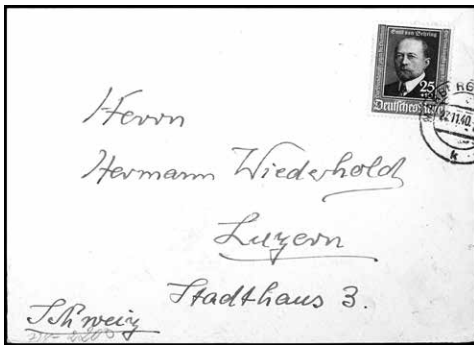 Emil von Behring
25
Deutsches Reich
22.11.40.
k
Herrn
Hermann Wiederhold
Luzern
Stadthaus 3.
Schweiz